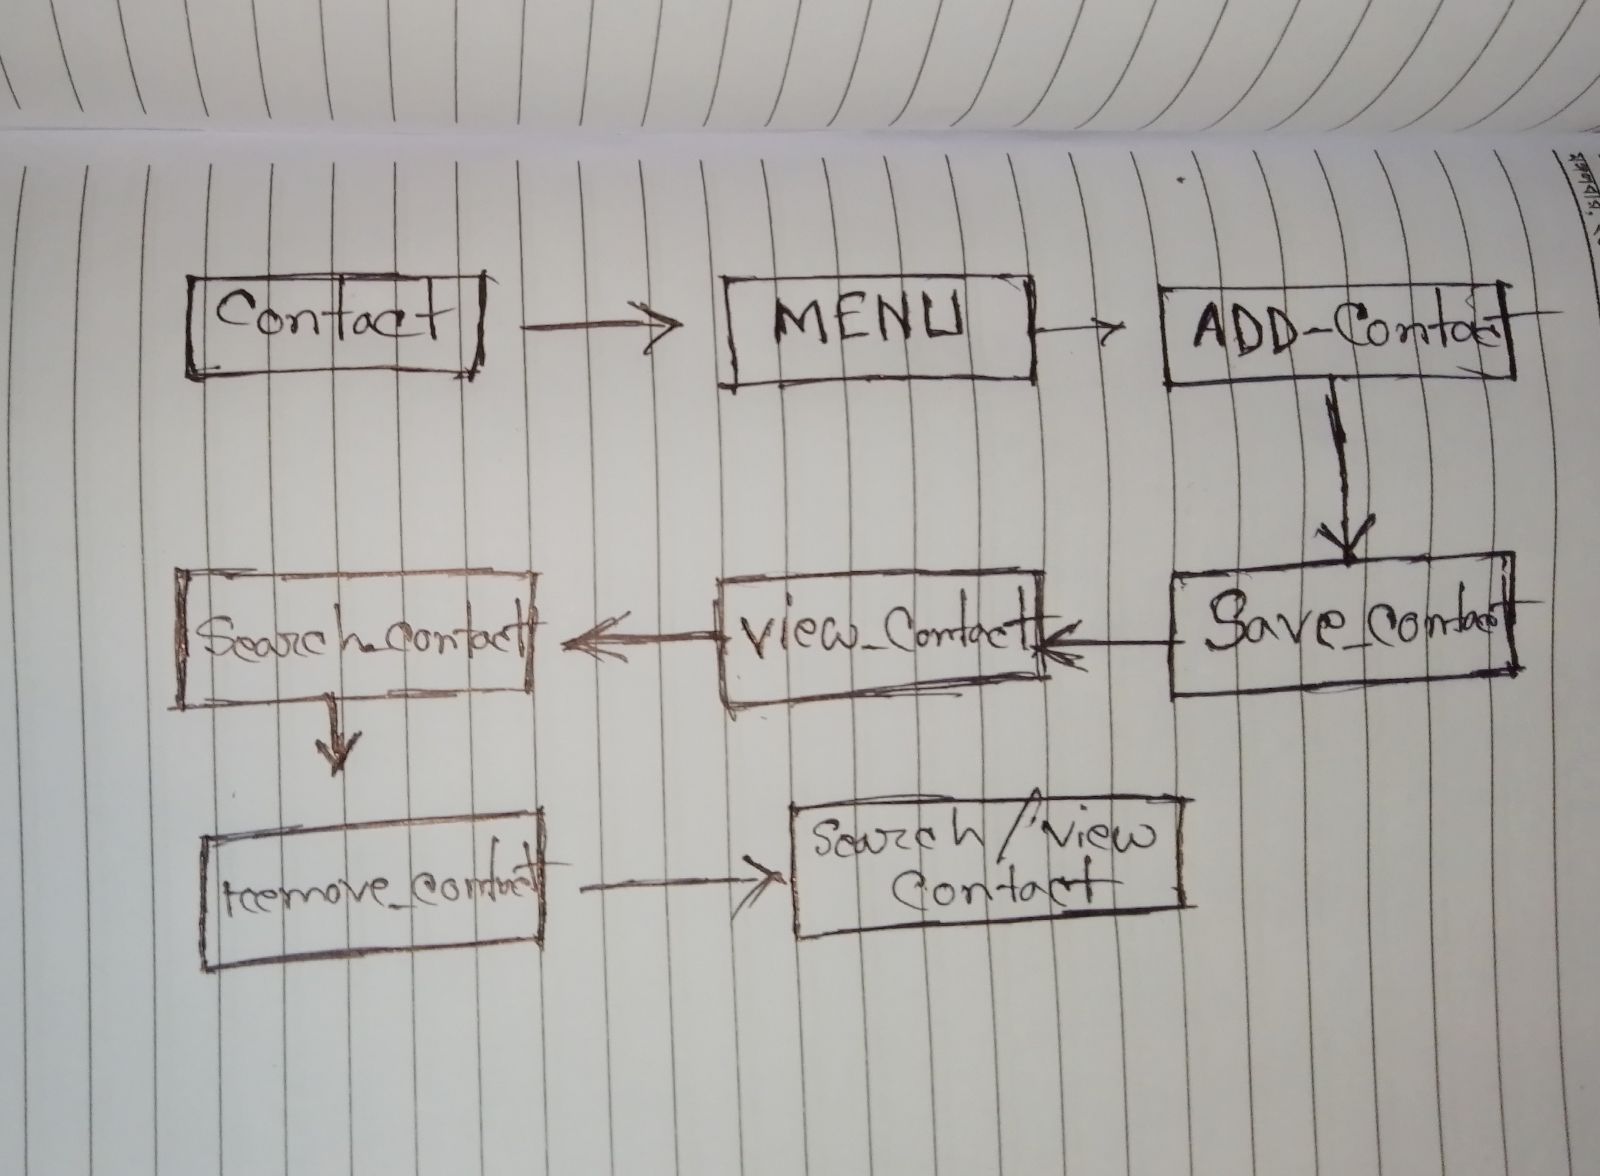 Contact
MENU
ADD-Contact
Search_contact
view_Contact
Save_contact
remove_contact
Search/view
Contact